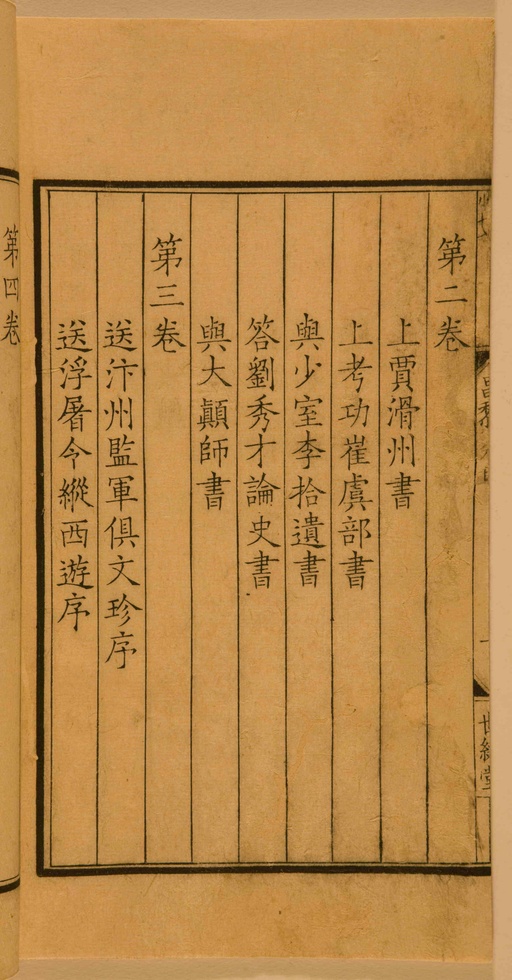 第二卷
上賈滑州書
上考功崔虞部書
與少室李拾遺書
答劉秀才論史書
與大顛師書
第三卷
送汴州監軍俱文珍序
送浮屠令縱西遊序
第四卷
世綵堂